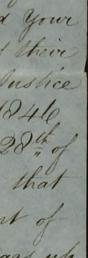 d your
their
Justice
1846
28th of
that
nt of